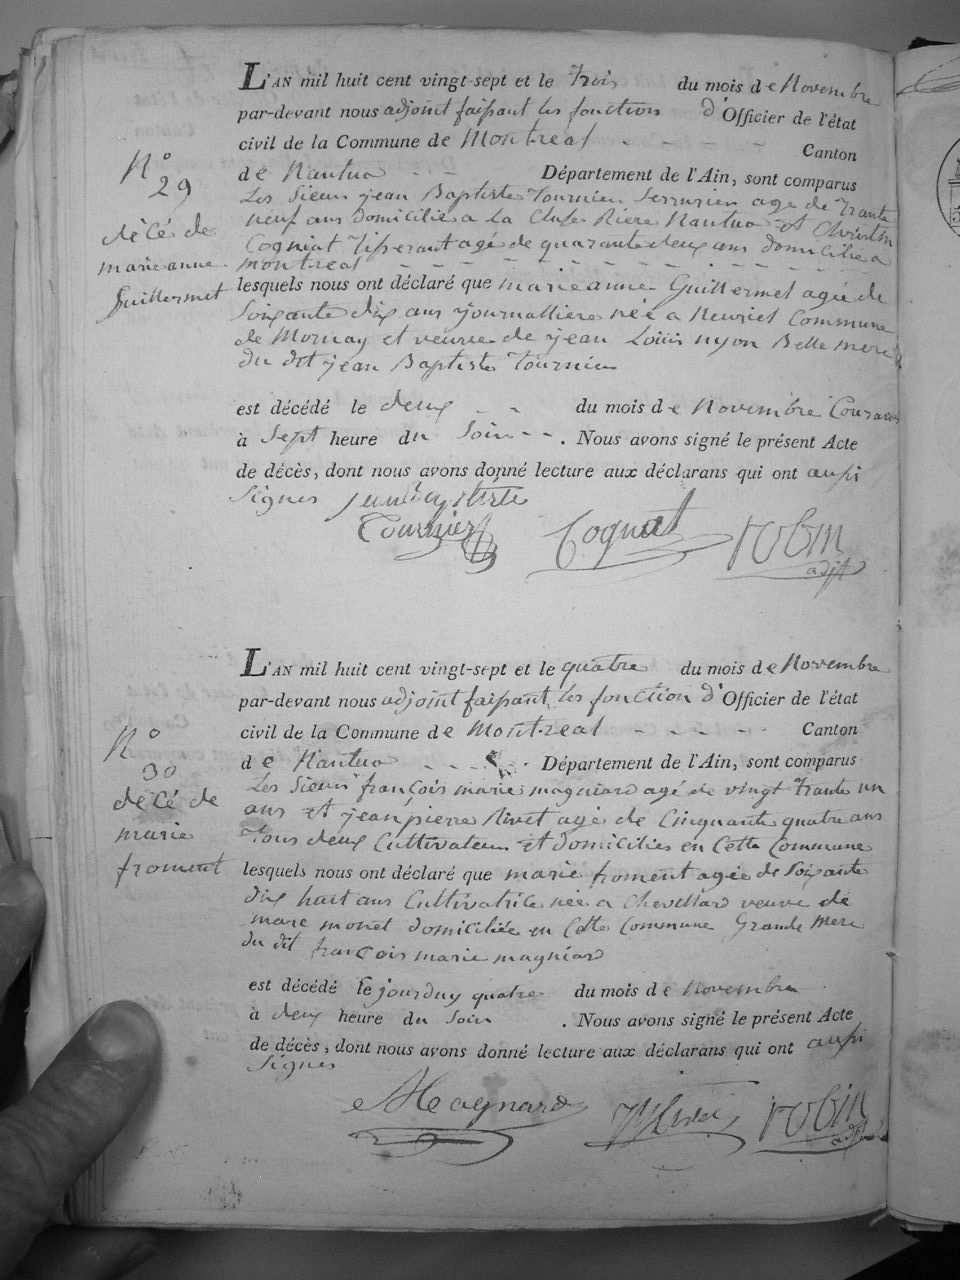 L'AN mil huit cent vingt-sept et le trois du mois de Novembre
par-devant nous adjoint faisant les fonctions d'Officier de l'état
civil de la Commune de Montreal - - - - - Canton
de Nantua - - - Département de l'Ain, sont comparus
N° 29
décé de
marie anne
Guillermet
Les Sieurs jean Baptiste Tournier Serrurier agé de trante
neuf ans domicilié a la Cluse Riere Nantua et
Cogniat Tisserant agé de quarante deux ans domicilié a
montreal - - - - - - - - - -
lesquels nous ont déclaré que marie anne Guillermet agée de
Soixante dix ans journalliere née a Commune
de Mornay et veuve de jean Louis nyon Belle mere
du dit jean Baptiste Tournier
est décédé le deux - - du mois de Novembre Courant
à Sept heure du Soir - - . Nous avons signé le présent Acte
de décès, dont nous avons donné lecture aux déclarans qui ont aussi
Signés jean Baptiste
Tournier Cogniat robin
adjt
L'AN mil huit cent vingt-sept et le quatre du mois de Novembre
par-devant nous adjoint faisant les fonction d'Officier de l'état
civil de la Commune de Montreal - - - - - Canton
de Nantua - - - Département de l'Ain, sont comparus
N° 30
décé de
marie
froment
Les Sieurs françois marie magniard agé de vingt trante un
ans et jean pierre Rivet agé de Cinquante quatre ans
tous deux Cultivateurs et domiciliés en Cette Commune
lesquels nous ont déclaré que marie froment agée de Soixante
dix huit ans Cultivatrice née a Chevillard veuve de
marc monet domiciliée en Cette Commune Grande Mere
du dit françois marie magniard
est décédé le jourduy quatre du mois de Novembre
à deux heure du Soir . Nous avons signé le présent Acte
de décès, dont nous avons donné lecture aux déclarans qui ont aussi
Signés
Magnard robin
adjt